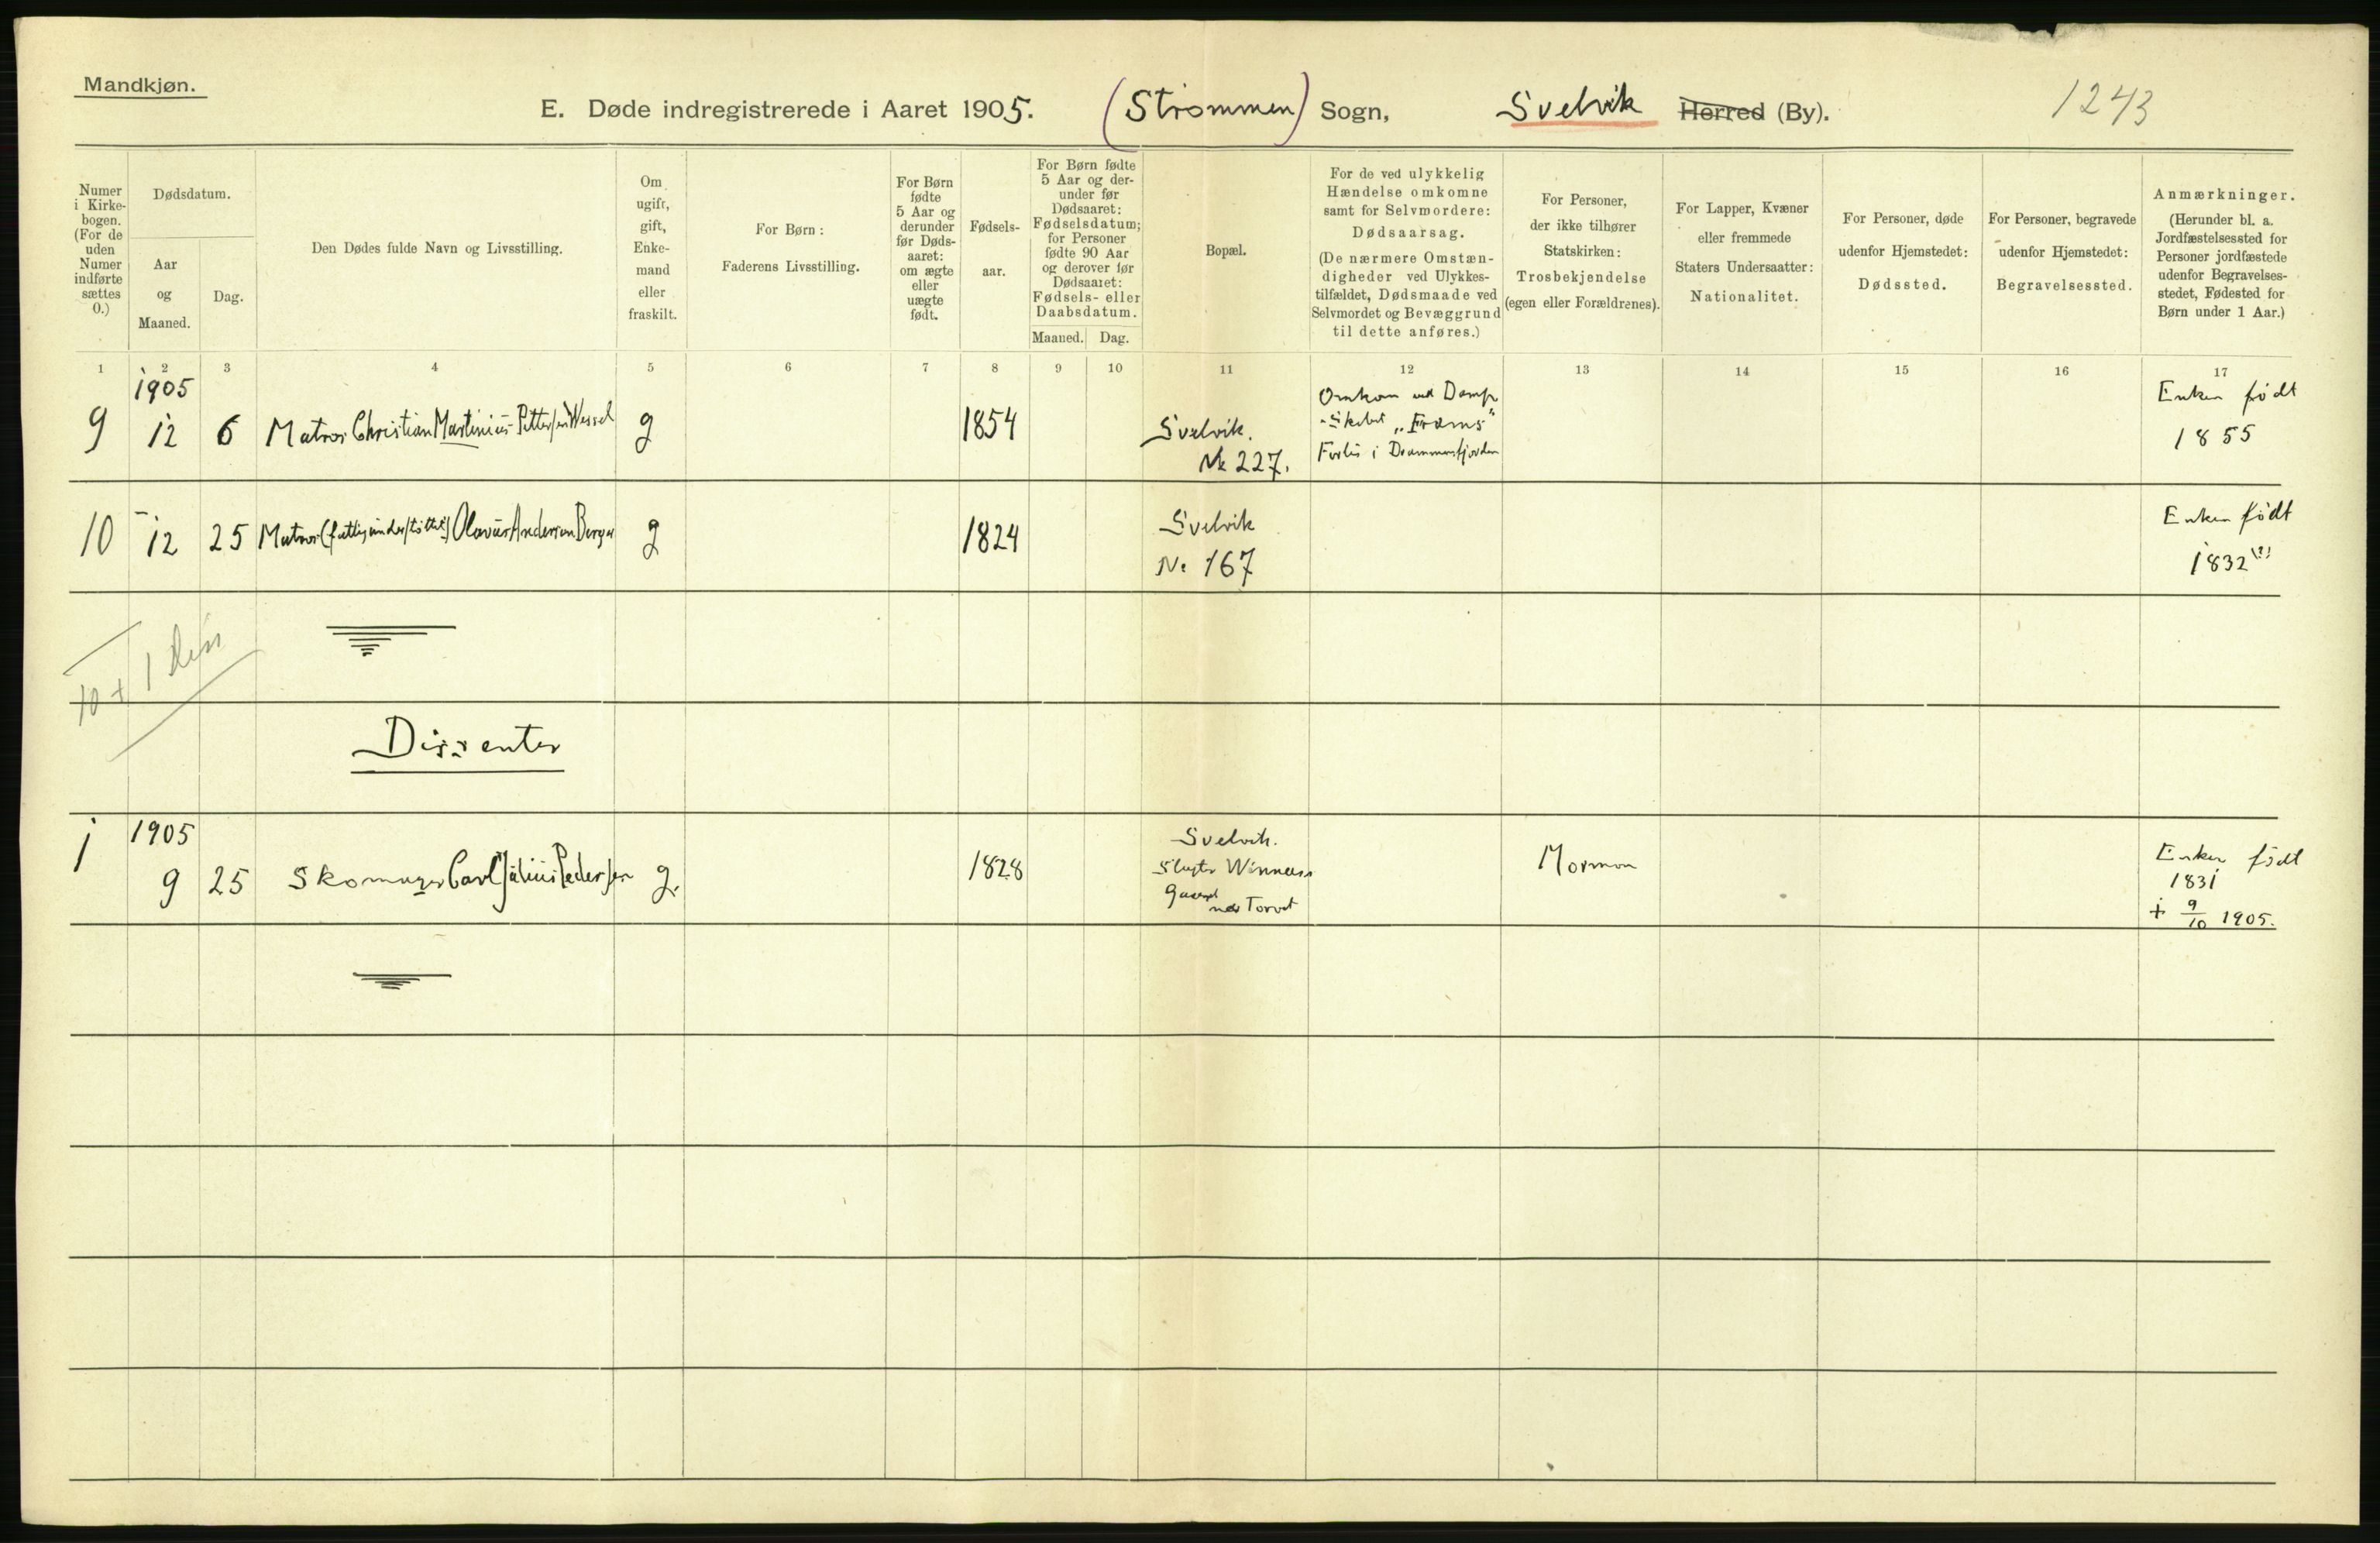 Mandkjøn.
E. Døde indregistrerede i Aaret 1905. (Strømmen) Sogn, Svelvik Herred (By). 1243
Numer i Kirkebogen. (For de uden Numer indførte sættes 0.)
Dødsdatum.
Aar og Maaned.
Dag.
Den Dødes fulde Navn og Livsstilling.
Om ugift, gift, Enkemand eller fraskilt.
For Børn: Faderens Livsstilling.
For Børn fødte 5 Aar og derunder før Dødsaaret: om ægte eller uægte født.
Fødselsaar.
For Børn fødte 5 Aar og derunder før Dødsaaret: Fødselsdatum; for Personer fødte 90 Aar og derover før Dødsaaret: Fødsels- eller Daabsdatum.
Maaned. Dag.
Bopæl.
For de ved ulykkelig Hændelse omkomne samt for Selvmordere: Dødsaarsag. (De nærmere Omstændigheder ved Ulykkestilfældet, Dødsmaade ved Selvmordet og Bevæggrund til dette anføres.)
For Personer, der ikke tilhører Statskirken: Trosbekjendelse (egen eller Forældrenes).
For Lapper, Kvæner eller fremmede Staters Undersaatter: Nationalitet.
For Personer, døde udenfor Hjemstedet: Dødssted.
For Personer, begravede udenfor Hjemstedet: Begravelsessted.
Anmærkninger. (Herunder bl. a. Jordfæstelsessted for Personer jordfæstede udenfor Begravelsesstedet, Fødested for Børn under 1 Aar.)
1 2 3 4 5 6 7 8 9 10 11 12 13 14 15 16 17
1905
9 12 6 Matros Christian Martinius Pettersen Wessel g 1854
Svelvik.
No 227.
Omkom ved Damp
-skibet "Frams"
Forlis i Drammensfjorden
Enken født
1855
10 12 25 Matros (fattigunderstøttet) Olavus Andersen Berger g 1824
Svelvik
No 167
Enken født
1832 (?)
10 + 1 diss
Dissenter
1905
1 9 25 Skomager Carl Julius Pedersen g. 1828
Svelvik.
Winness
Gaard
ved Torvet
Mormon
Enken født
1831
+ 9/10 1905.